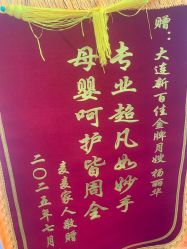 赠：大连新百佳金牌月嫂 杨丽华
专业超凡如妙手
母婴呵护皆周全
麦麦家人敬赠
二〇二五年七月